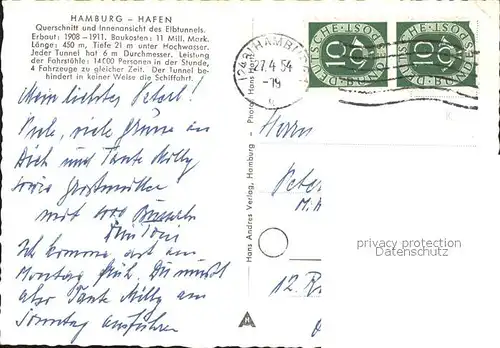 HAMBURG – HAFEN
Querschnitt und Innenansicht des Elbtunnels.
Erbaut: 1908 – 1911. Baukosten: 11 Mill. Mark.
Länge: 450 m, Tiefe 21 m unter Hochwasser.
Jeder Tunnel hat 6 m Durchmesser. Leistung
der Fahrstühle: 14000 Personen in der Stunde,
4 Fahrzeuge zu gleicher Zeit. Der Tunnel be-
hindert in keiner Weise die Schiffahrt.
Mein liebster
Viele, viele Grüsse an
Dich und Tante Milly
sowie Grossmutter
mit 1000
Ich komme erst am
Montag früh. Du musst
also Tante Milly am
Sonntag ausführen
Hans Andres Verlag, Hamburg - Photo: Hans Hartz
(24a) HAMBURG
27.4.54
-19
DEUTSCHE POST
10
BUNDESPOST
DEUTSCHE POST
10
BUNDESPOST
Herrn
Peter
12.
privacy protection
Datenschutz